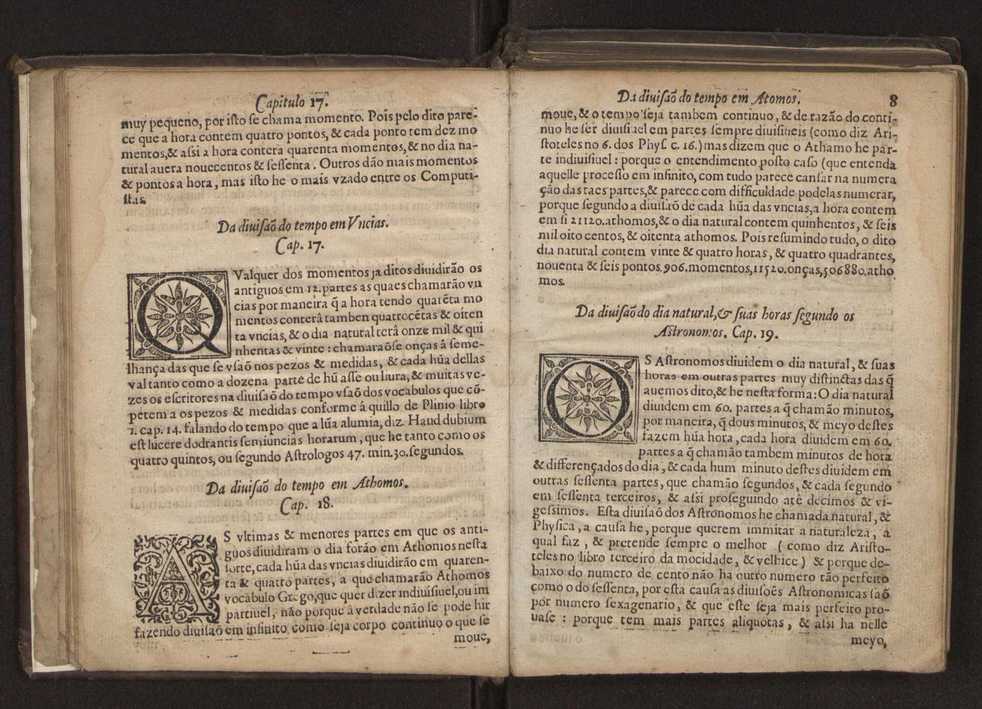 Capitulo 17.
muy pequeno, por iſto ſe chama momento. Pois pelo dito pare-
ce que a hora contem quatro pontos, & cada ponto tem dez mo
mentos, & aſsi a hora contera quarenta momentos, & no dia na-
tural auera nouecentos & ſeſſenta. Outros dão mais momentos
& pontos a hora, mas iſto he o mais vzado entre os Computi-
ſtas.
Da diuiſaõ do tempo em Vncias.
Cap. 17.
QValquer dos momentos ja ditos diuidirão os
antiguos em 12. partes as quaes chamarão vn
cias por maneira q̃ a hora tendo quarẽta mo
mentos conterâ tambem quatrocẽtas & oiten
ta vncias, & o dia natural terâ onze mil & qui
nhentas & vinte: chamaraõſe onças â ſeme-
lhança das que ſe vſaõ nos pezos & medidas, & cada hũa dellas
val tanto como a dozena parte de hũ aſſe ou liura, & muitas ve-
zes os eſcritores na diuiſaõ do tempo vſaõ dos vocabulos que cõ-
petem a os pezos & medidas conforme â quillo de Plinio libro
2. cap. 14. falando do tempo que a lũa alumia, diz. Haud dubium
eſt lucere dodrantis ſemiuncias horarum, que he tanto como os
quatro quintos, ou ſegundo Aſtrologos 47. min. 30. ſegundos.
Da diuiſaõ do tempo em Athomos.
Cap. 18.
AS vltimas & menores partes em que os anti-
guos diuidiram o dia forão em Athomos neſta
ſorte, cada hũa das vncias diuidirão em quaren-
ta & quatro partes, a que chamarão Athomos
vocabulo Grego, que quer dizer indiuiſiuel, ou im
partiuel, não porque â verdade não ſe pode hir
fazendo diuiſaõ em infinito como ſeja corpo continuo o que ſe
moue,
Da diuiſaõ do tempo em Atomos. 8
moue, & o tempo ſeja tambem continuo, & de razão do conti-
nuo he ſer diuiſiuel em partes ſempre diuiſiueis (como diz Ari-
ſtoteles no 6. dos Phyſ. c. 16.) mas dizem que o Athamo he par-
te indiuiſiuel: porque o entendimento poſto caſo (que entenda
aquelle proceſſo em infinito, com tudo parece canſar na numera
ção das taes partes, & parece com difficuldade podelas numerar,
porque ſegundo a diuiſaõ de cada hũa das vncias, a hora contem
em ſi 21120. athomos, & o dia natural contem quinhentos, & ſeis
mil oito centos, & oitenta athomos. Pois reſumindo tudo, o dito
dia natural contem vinte & quatro horas, & quatro quadrantes,
nouenta & ſeis pontos. 906. momentos, 11520. onças, 506880. atho
mos.
Da diuiſaõ do dia natural, & ſuas horas ſegundo os
Aſtronomos, Cap. 19.
OS Aſtronomos diuidem o dia natural, & ſuas
horas em outras partes muy diſtinctas das q̃
auemos dito, & he neſta forma: O dia natural
diuidem em 60. partes a q̃ chamão minutos,
por maneira, q̃ dous minutos, & meyo deſtes
fazem hũa hora, cada hora diuidem em 60.
partes a q̃ chamão tambem minutos de hora
& differençados do dia, & cada hum minuto deſtes diuidem em
outras ſeſſenta partes, que chamão ſegundos, & cada ſegundo
em ſeſſenta terceiros, & aſsi proſeguindo atè decimos & vi-
geſsimos. Eſta diuiſaõ dos Aſtronomos he chamada natural, &
Phyſica, a cauſa he, porque querem immitar a naturaleza, a
qual faz, & pretende ſempre o melhor (como diz Ariſto-
teles no libro terceiro da mocidade, & velhice) & porque de-
baixo do numero de cento não ha outro numero tão perfeito
como o do ſeſſenta, por eſta cauſa as diuiſoẽs Aſtronomicas ſaõ
por numero ſexagenario, & que eſte ſeja mais perfeito pro-
uaſe: porque tem mais partes aliquotas, & aſsi ha nelle
meyo,